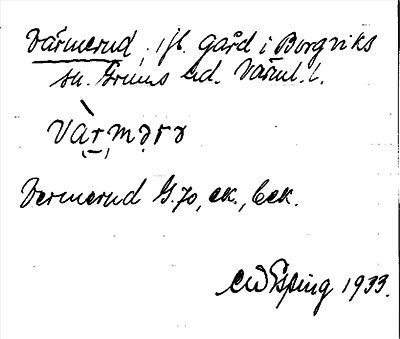 Värmerud, ijb. gård i Borgviks
sn. Grums hd. Värml. l.
và̱r̩mərə
Vermerud G.70, ek., bek.
CW Esping 1933.